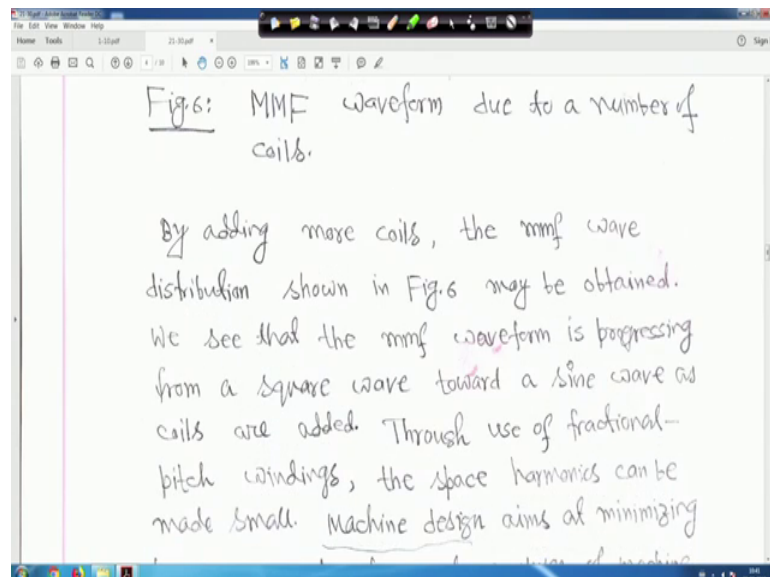 21-30.pdf - Adobe Acrobat Reader DC
File Edit View Window Help
Home Tools 1-10.pdf 21-30.pdf × Sign
4 / 10
Fig.6: MMF waveform due to a number of
coils.
By adding more coils, the mmf wave
distribution shown in Fig.6 may be obtained.
We see that the mmf waveform is progressing
from a square wave toward a sine wave as
coils are added. Through use of fractional-
pitch windings, the space harmonics can be
made small. Machine design aims at minimizing